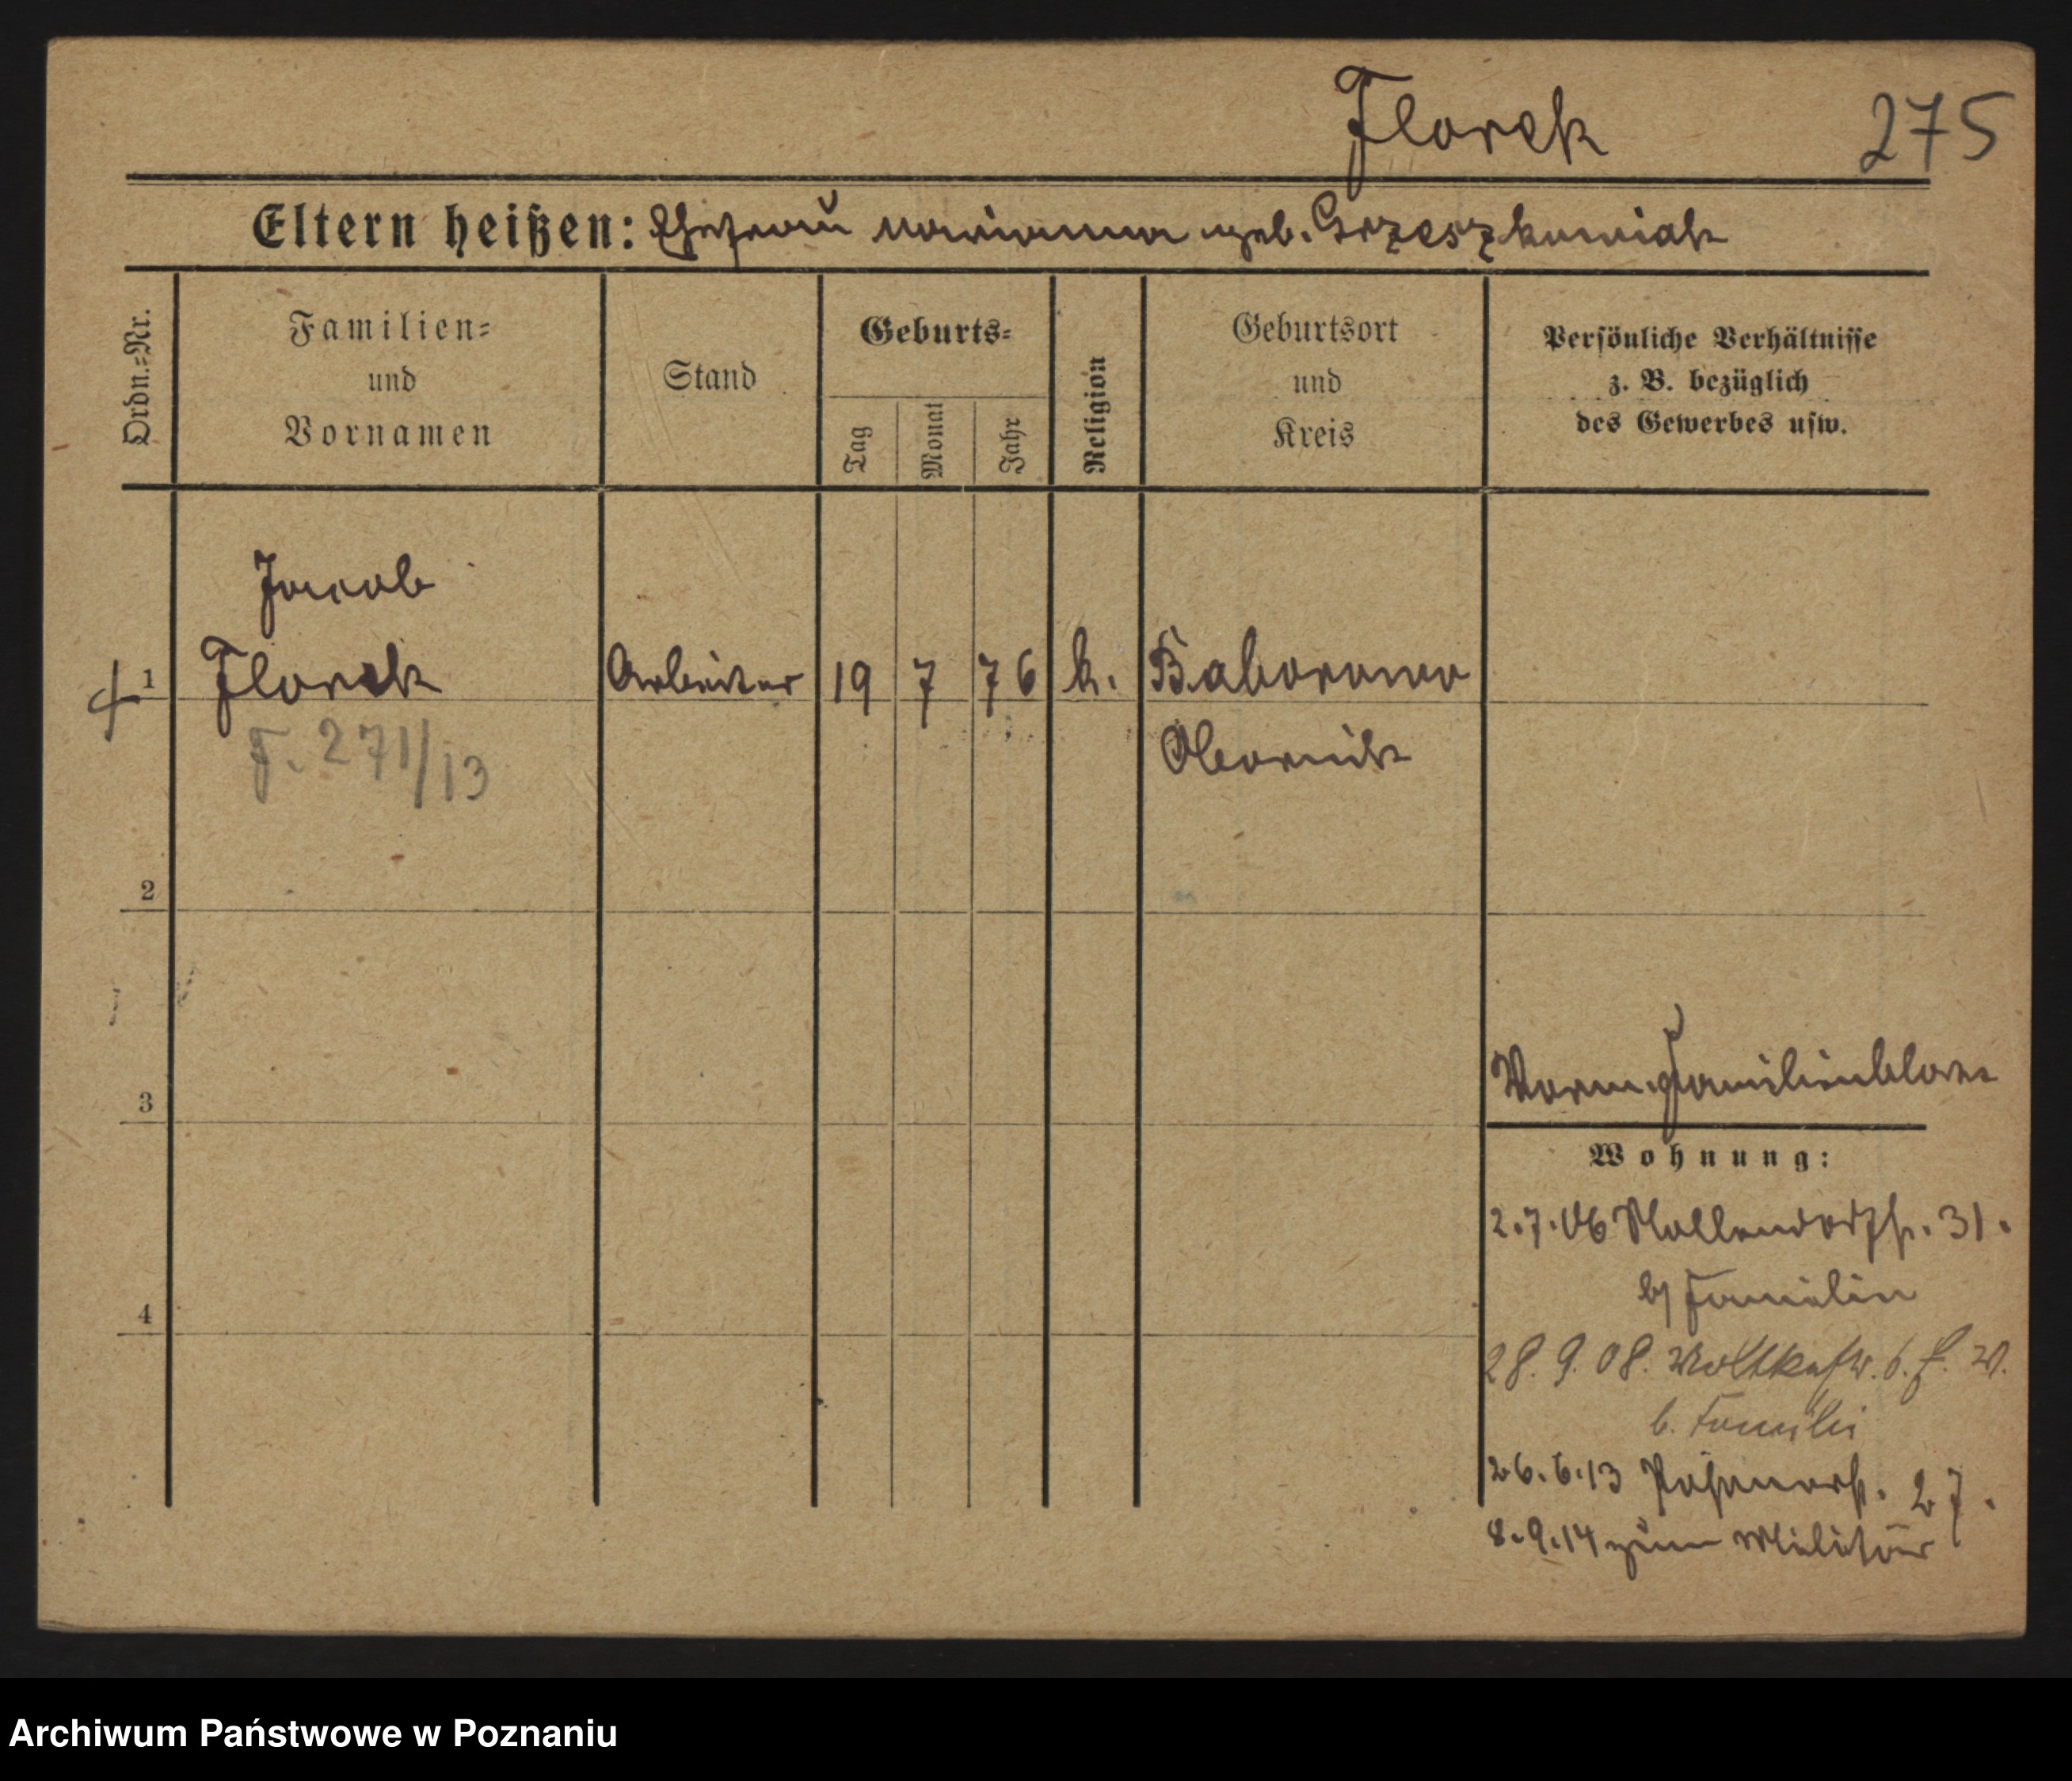 Florek 275
Eltern heißen: Ehefrau Marianna geb. Grzeszkowiak
Ordn.=Nr.
Familien=
und
Vornamen
Stand
Geburts=
Tag
Monat
Jahr
Religion
Geburtsort
und
Kreis
Persönliche Verhältnisse
z. B. bezüglich
des Gewerbes usw.
Jacob
1 Florek Arbeiter 19 7 76 k. Baborowo
F. 271/13 Obornik
2
3 Familienblatt
Wohnung:
2.7.06 31.
b/ Familie
28.9.08. 6.
b. Familie
26.6.13 27.
4
8.9.14 zum Militär
Archiwum Państwowe w Poznaniu